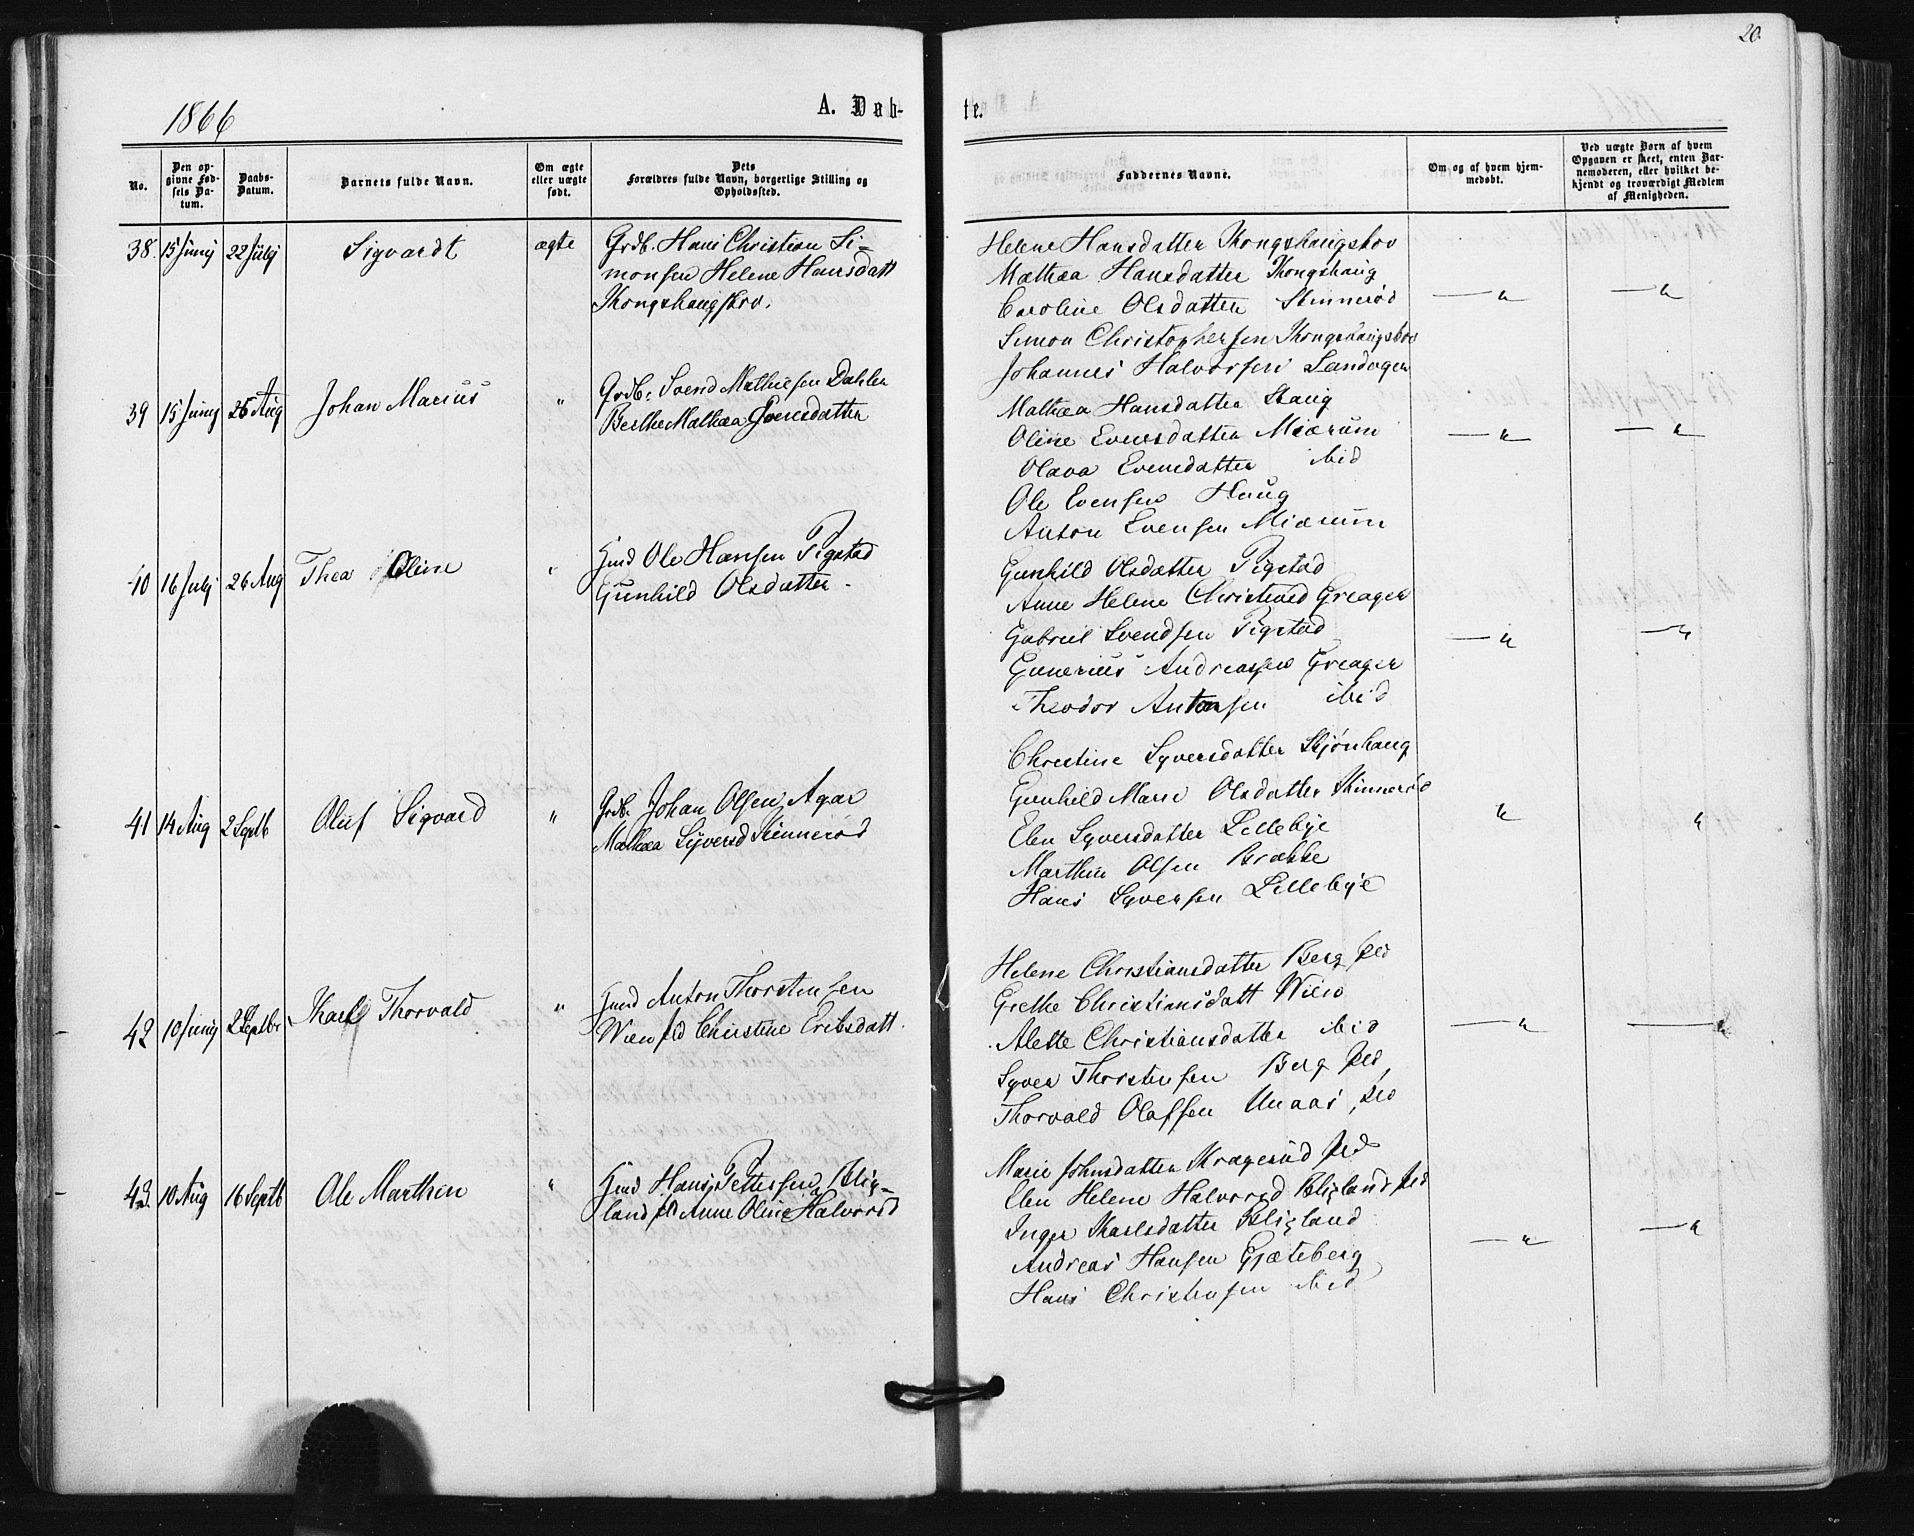 20.
1866
A. Døb-
te.
No.
Den op-
givne Fød-
sels Da-
tum.
Daabs-
Datum.
Barnets fulde Navn.
Om ægte
eller uægte
født.
Dets
Forældres fulde Navn, borgerlige Stilling og
Opholdssted.
Faddernes Navne.
Om og af hvem hjem-
medøbt.
Ved uægte Børn af hvem
Opgaven er skeet, enten Bar-
nemoderen, eller hvilket be-
kjendt og troværdigt Medlem
af Menigheden.
38. 15 Junij 22 Julij Sigvardt ægte Grdb. Hans Christian Si-
monsen Helene Hansdatt
Kongshaugskov.
Helene Hansdatter Kongshaugskov
Mathea Hansdatter Kongshaug
Caroline Olsdatter Skinnerød — " — "
Simon Christophersen Kongshaugskov
Johannes Halvorsen Sandvigen
39 15 Junij 26 Aug Johan Marius " Grdb. Svend Mathiesen Dahler
Berthe Mathea Evensdatter
Mathea Hansdatter Haug
Oline Evensdatter Miærum — " — "
Olava Evensdatter ibid
Ole Evensen Haug
Anton Evensen Miærum
40 16 Julij 26 Aug Thea Oline " Hmd Ole Hansen Pigstad
Gunhild Olsdatter.
Gunhild Olsdatter Pigstad
Anne Helene Christensd Greager
Gabriel Svendsen Pigstad — " — "
Gunerius Andreassen Greager
Theodor Antonsen ibid
41 14 Aug 2 Septb Oluf Sigvard " Grdb. Johan Olsen Agar
Mathea Syversd Skinnerød
Christine Syversdatter Skjønhaug
Gunhild Marie Olsdatter Skinnerød
Elen Syversdatter Lillebye " "
Marthin Olsen Brække
Hans Syversen Lillebye
42 10 Junij 2 Septbr Karl Thorvald " Hmd Anton Thorstensen
Wien Eie Christine Eriksdatt.
Helene Christiansdatter Berg Eie
Grethe Christiansdatt Wien
Alette Christiansdatter ibid — " — "
Syver Thorstensen Berg Eie
Thorvald Olafsen Eie
43. 10 Aug 16 Septb Ole Marthin " Hmd Hans Pettersen Blig-
land Eie Anne Oline Halvorsd
Marie Johnsdatter Kragerud Eie
Elen Helene Halvorsd Bligland Eie
Inger Karlsdatter Bligland
Andreas Hansen Gjæteberg — " — "
Hans Christensen ibid